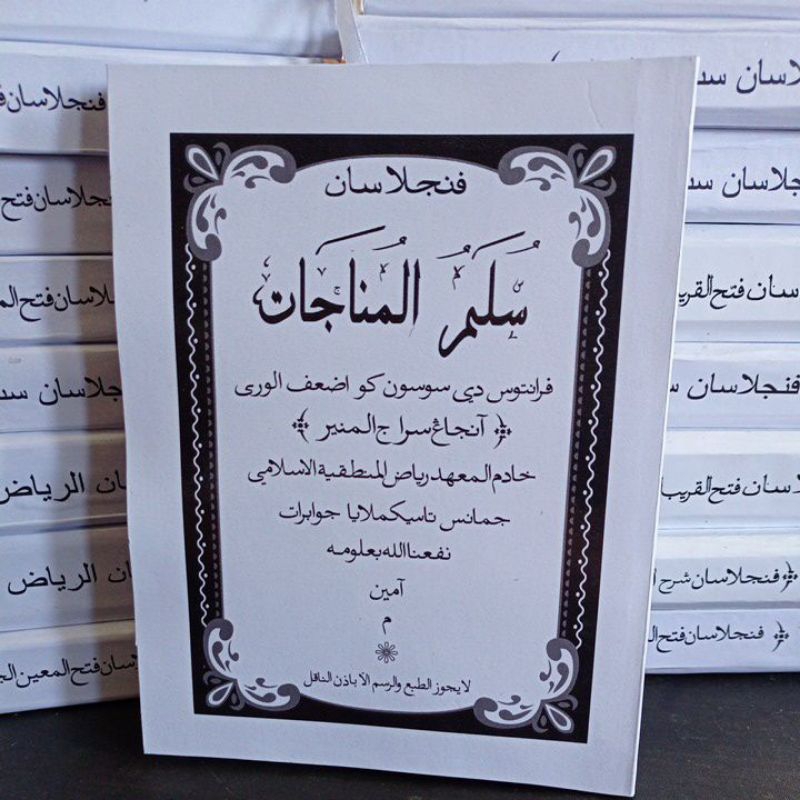 فنجلاسان
سُلَّمُ الْمُنَاجَات
فرانتوس دي سوسون كو اضعف الورى
﴿ آنجاڠ سراج المنير ﴾
خادم المعهد رياض المنطقية الاسلامي
جمانس تاسيكملايا جوابرات
نفعنا الله بعلومه
آمين
م
لا يجوز الطبع والرسم الا باذن الناقل
فنجلاسان
فنجلاسان فتح
فنجلاسان فتح الم
فنجلاسان
ان الرياض
ان الرياض
فنجلاسان فتح المعين
فنجلاسان
فتح القريب
فنجلاسان
فنجلاسان فتح القريب
﴿ فنجلاسان شرح
﴿ فنجلاسان فتح